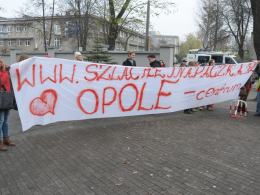 WWW.SZLACHETNAPACZKA.PL
OPOLE - centrum